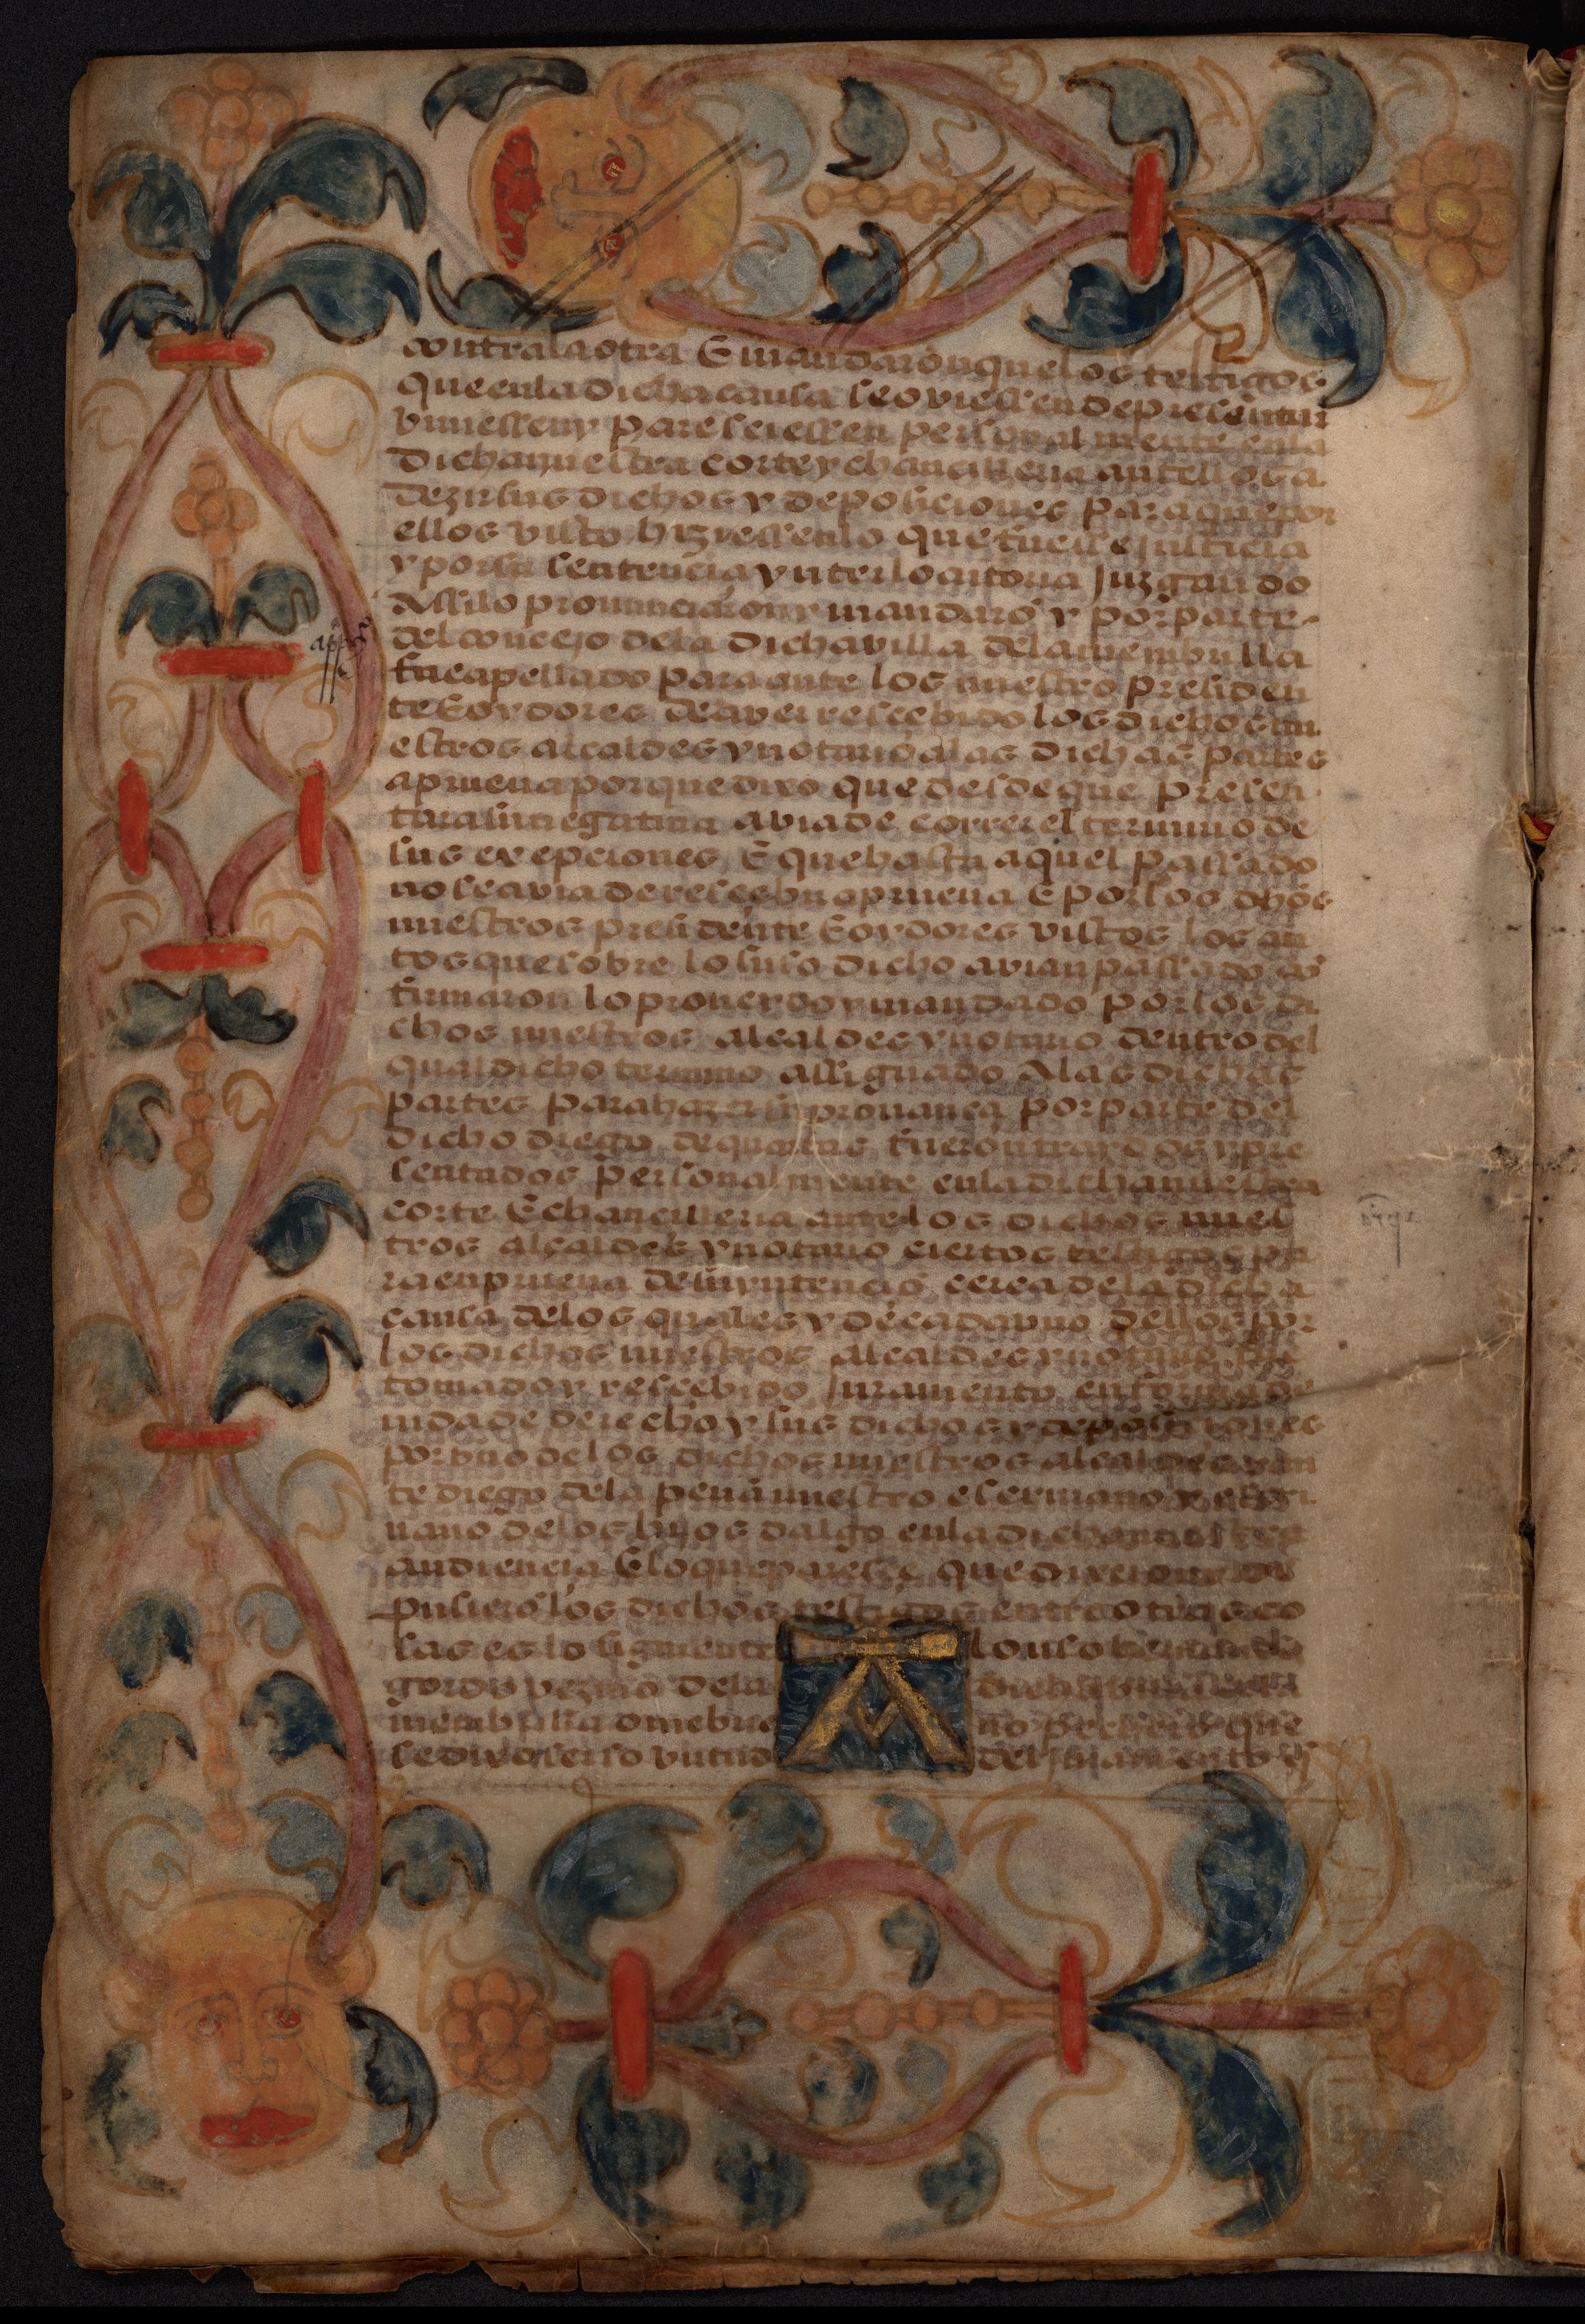 contra la otra E mandaron que los testigos
que en la dicha causa se oviessen de presentar
viniessen y paresciessen personalmente en la
dicha nuestra corte y chancilleria ante ellos a
dezir sus dichos y deposiciones para que por
ellos visto hiziessen lo que fuesse justicia
y por su sentencia ynterlocutoria juzgando
Assi lo pronunciaron y mandarō y por parte
del concejo de la dicha villa de la membrilla
fue apellado para ante los nuestro presiden
te E oydores de aver rescebido los dichos nu
estros alcaldes y notario a las dichas partes
a prueva porque dixo que desde que presen
tara su negativa avia de correr el termino de
sus exepciones E que hasta aquel passado
no se avia de rescebir a prueva E por los dhōs
nuestros presidente E oydores vistos los au
tos que sobre lo suso dicho avian passado cō
firmaron lo proveydo y mandado por los di
chos nuestros alcaldes y notario dentro del
qual dicho termino assignado A las dichas
partes para hazer su provança por parte del
dicho diego de fueron traydos y pre
sentados personalmente en la dicha nuestra
corte E chancilleria ante los dichos nues
tros alcaldes y notario ciertos testigos pa
ra en prueva de su yntencio cerca de la dicha
causa de los quales y de cada uno dellos por
los dichos nuestros alcaldes y notario fue
tomado y rescebido juramento en forma de
vida de derecho y sus dichos y deposiciones
por uno de los dichos nuestros alcaldes y an
te diego de la peña nuestro escrivano y escri
vano de los hijos dalgo en la dicha nuestra
audiencia E lo que paresce que dixeron y de
pusierō los dichos testigos entre otras co
sas es lo siguiente Alonso
gordo vezino de la dicha villa de la
membrilla ome bueno pechero que
se dixo ser so virtud del juramento q̄